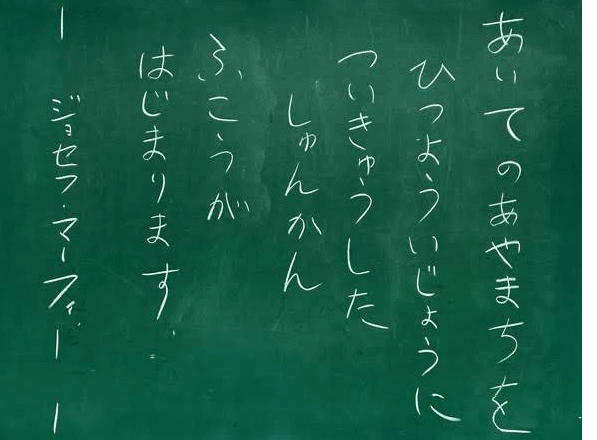 あいてのあやまちを
ひつよういじょうに
ついきゅうした
しゅんかん
ふこうが
はじまります。
― ジョセフ・マーフィー ―